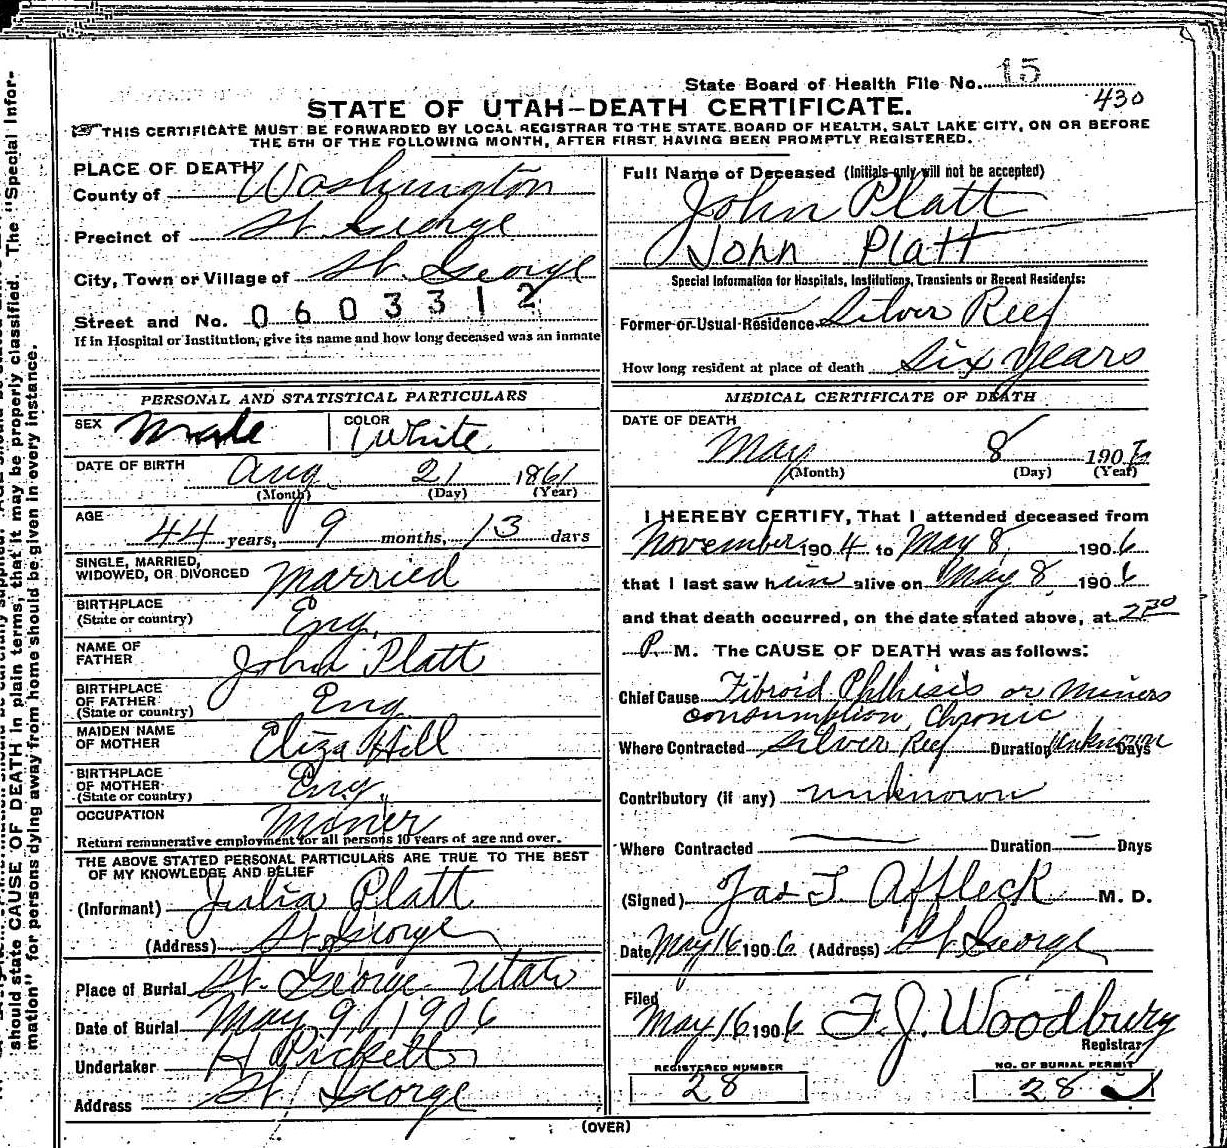 State Board of Health File No. 15
430
STATE OF UTAH—DEATH CERTIFICATE.
☞ THIS CERTIFICATE MUST BE FORWARDED BY LOCAL REGISTRAR TO THE STATE BOARD OF HEALTH, SALT LAKE CITY, ON OR BEFORE
THE 5TH OF THE FOLLOWING MONTH, AFTER FIRST HAVING BEEN PROMPTLY REGISTERED.
PLACE OF DEATH
County of Washington
Precinct of St. George
City, Town or Village of St. George
Street and No. 0603312
If in Hospital or Institution, give its name and how long deceased was an inmate
PERSONAL AND STATISTICAL PARTICULARS
SEX Male COLOR White
DATE OF BIRTH Aug 21 1861
(Month) (Day) (Year)
AGE 44 years, 9 months, 13 days
SINGLE, MARRIED,
WIDOWED, OR DIVORCED Married
BIRTHPLACE
(State or country) Eng.
NAME OF
FATHER John Platt
BIRTHPLACE
OF FATHER
(State or country) Eng
MAIDEN NAME
OF MOTHER Eliza Hill
BIRTHPLACE
OF MOTHER
(State or country) Eng.
OCCUPATION Miner
Return remunerative employment for all persons 10 years of age and over.
THE ABOVE STATED PERSONAL PARTICULARS ARE TRUE TO THE BEST
OF MY KNOWLEDGE AND BELIEF
(Informant) Julia Platt
(Address) St. George
Place of Burial St. George Utah
Date of Burial May 9, 1906
Undertaker H Pickett
Address St. George
Full Name of Deceased (Initials only will not be accepted)
John Platt
John Platt
Special Information for Hospitals, Institutions, Transients or Recent Residents:
Former or Usual Residence Silver Reef
How long resident at place of death Six Years
MEDICAL CERTIFICATE OF DEATH
DATE OF DEATH
May 8 1906
(Month) (Day) (Year)
I HEREBY CERTIFY, That I attended deceased from
November 1904 to May 8, 1906
that I last saw him alive on May 8 1906
and that death occurred, on the date stated above, at 2 30
P. M. The CAUSE OF DEATH was as follows:
Chief Cause Fibroid Phthisis or Miners
consumption, Chronic
Where Contracted Silver Reef Duration Unknown Days
Contributory (if any) unknown
Where Contracted — Duration — Days
(Signed) Jas T. Affleck M. D.
Date May 16 1906 (Address) St. George
Filed
May 16 1906 F. J. Woodbury
Registrar
REGISTERED NUMBER
28
NO. OF BURIAL PERMIT
28
(OVER)
should state CAUSE OF DEATH in plain terms, that it may be properly classified. The "Special Infor-
mation" for persons dying away from home should be given in every instance.